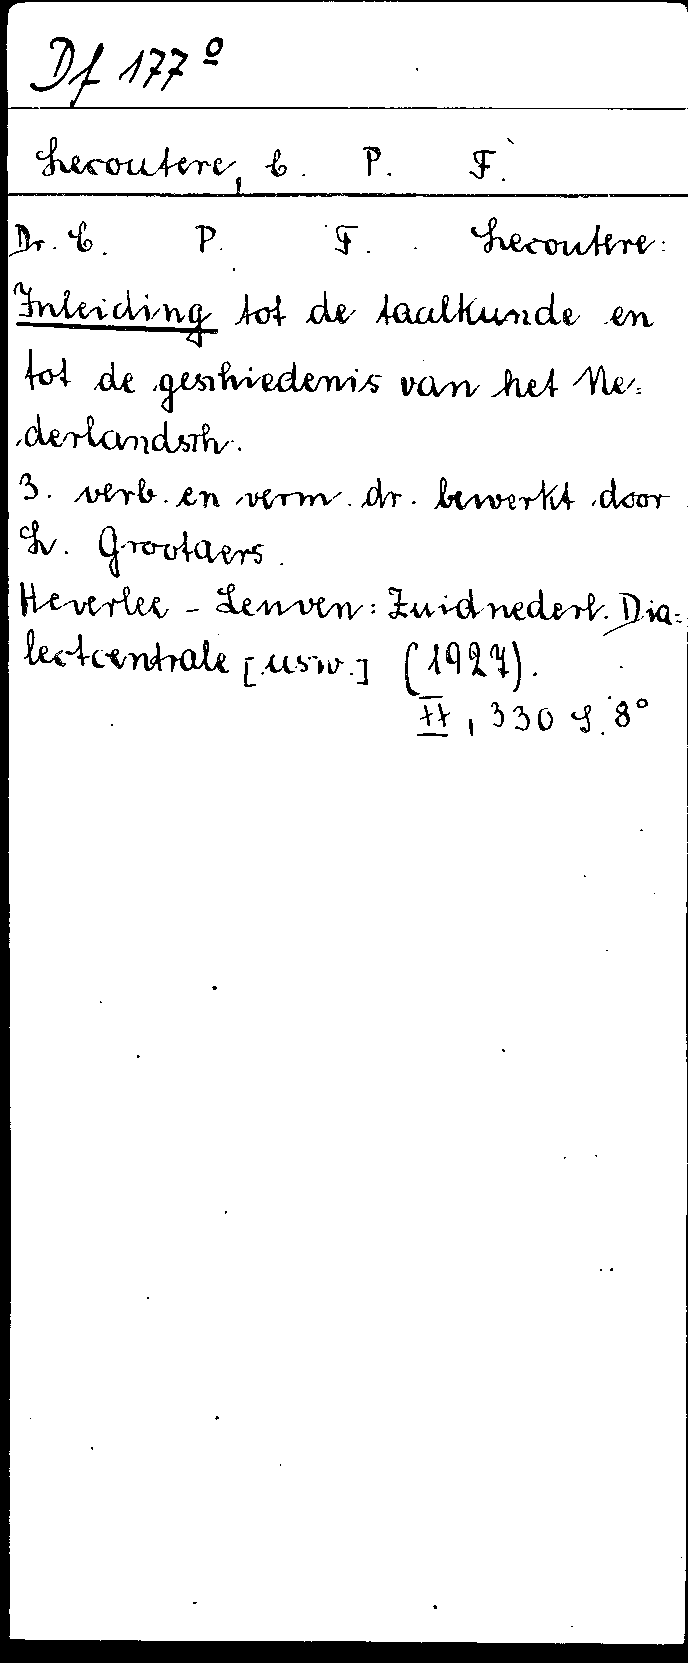 Df 177º
Lecoutere, C. P. F.
Dr. C. P. F. Lecoutere:
Inleiding tot de taalkunde en
tot de geschiedenis van het Ne=
derlandsch.
3. verb. en verm. dr. bewerkt door
L. Grootaers.
Heverlee - Leuven: Zuidnederl. Dia=
lectcentrale [usw.] (1927).
II, 330 S. 8°